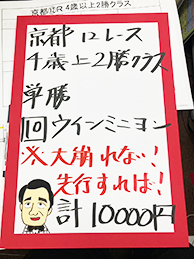 京都12R 4歳以上2勝クラス
京都12レース
4歳上2勝クラス
単勝
⑩ウインミニヨン
※大崩れない!
先行すれば!
計10000円